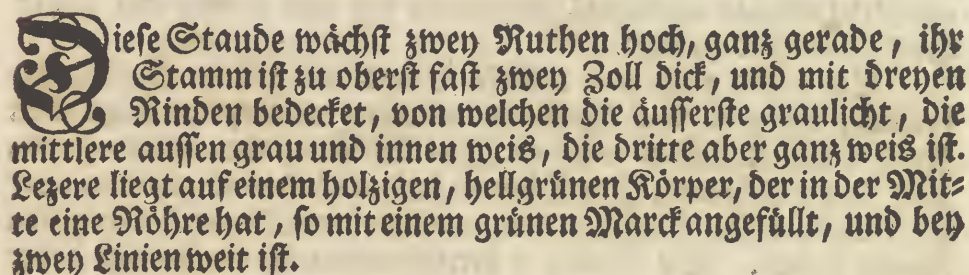 Diese Staude wächst zwey Ruthen hoch, ganz gerade, ihr
Stamm ist zu oberst fast zwey Zoll dick, und mit dreyen
Rinden bedecket, von welchen die äusserste graulicht, die
mittlere aussen grau und innen weis, die dritte aber ganz weis ist.
Lezere liegt auf einem holzigen, hellgrünen Körper, der in der Mit-
te eine Röhre hat, so mit einem grünen Marck angefüllt, und bey
zwey Linien weit ist.